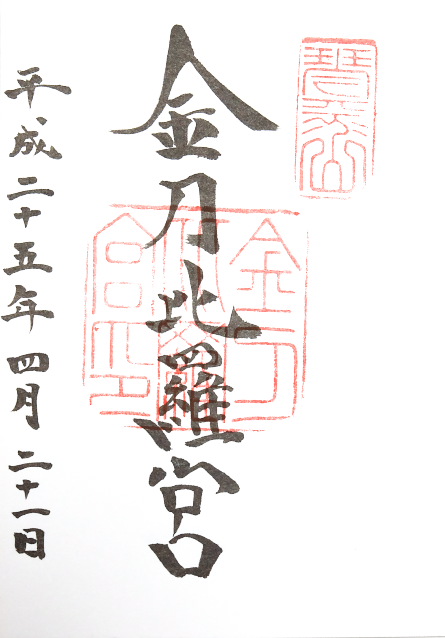 琴弾山
金刀比羅宮
金刀比羅宮印
平成二十五年四月二十一日